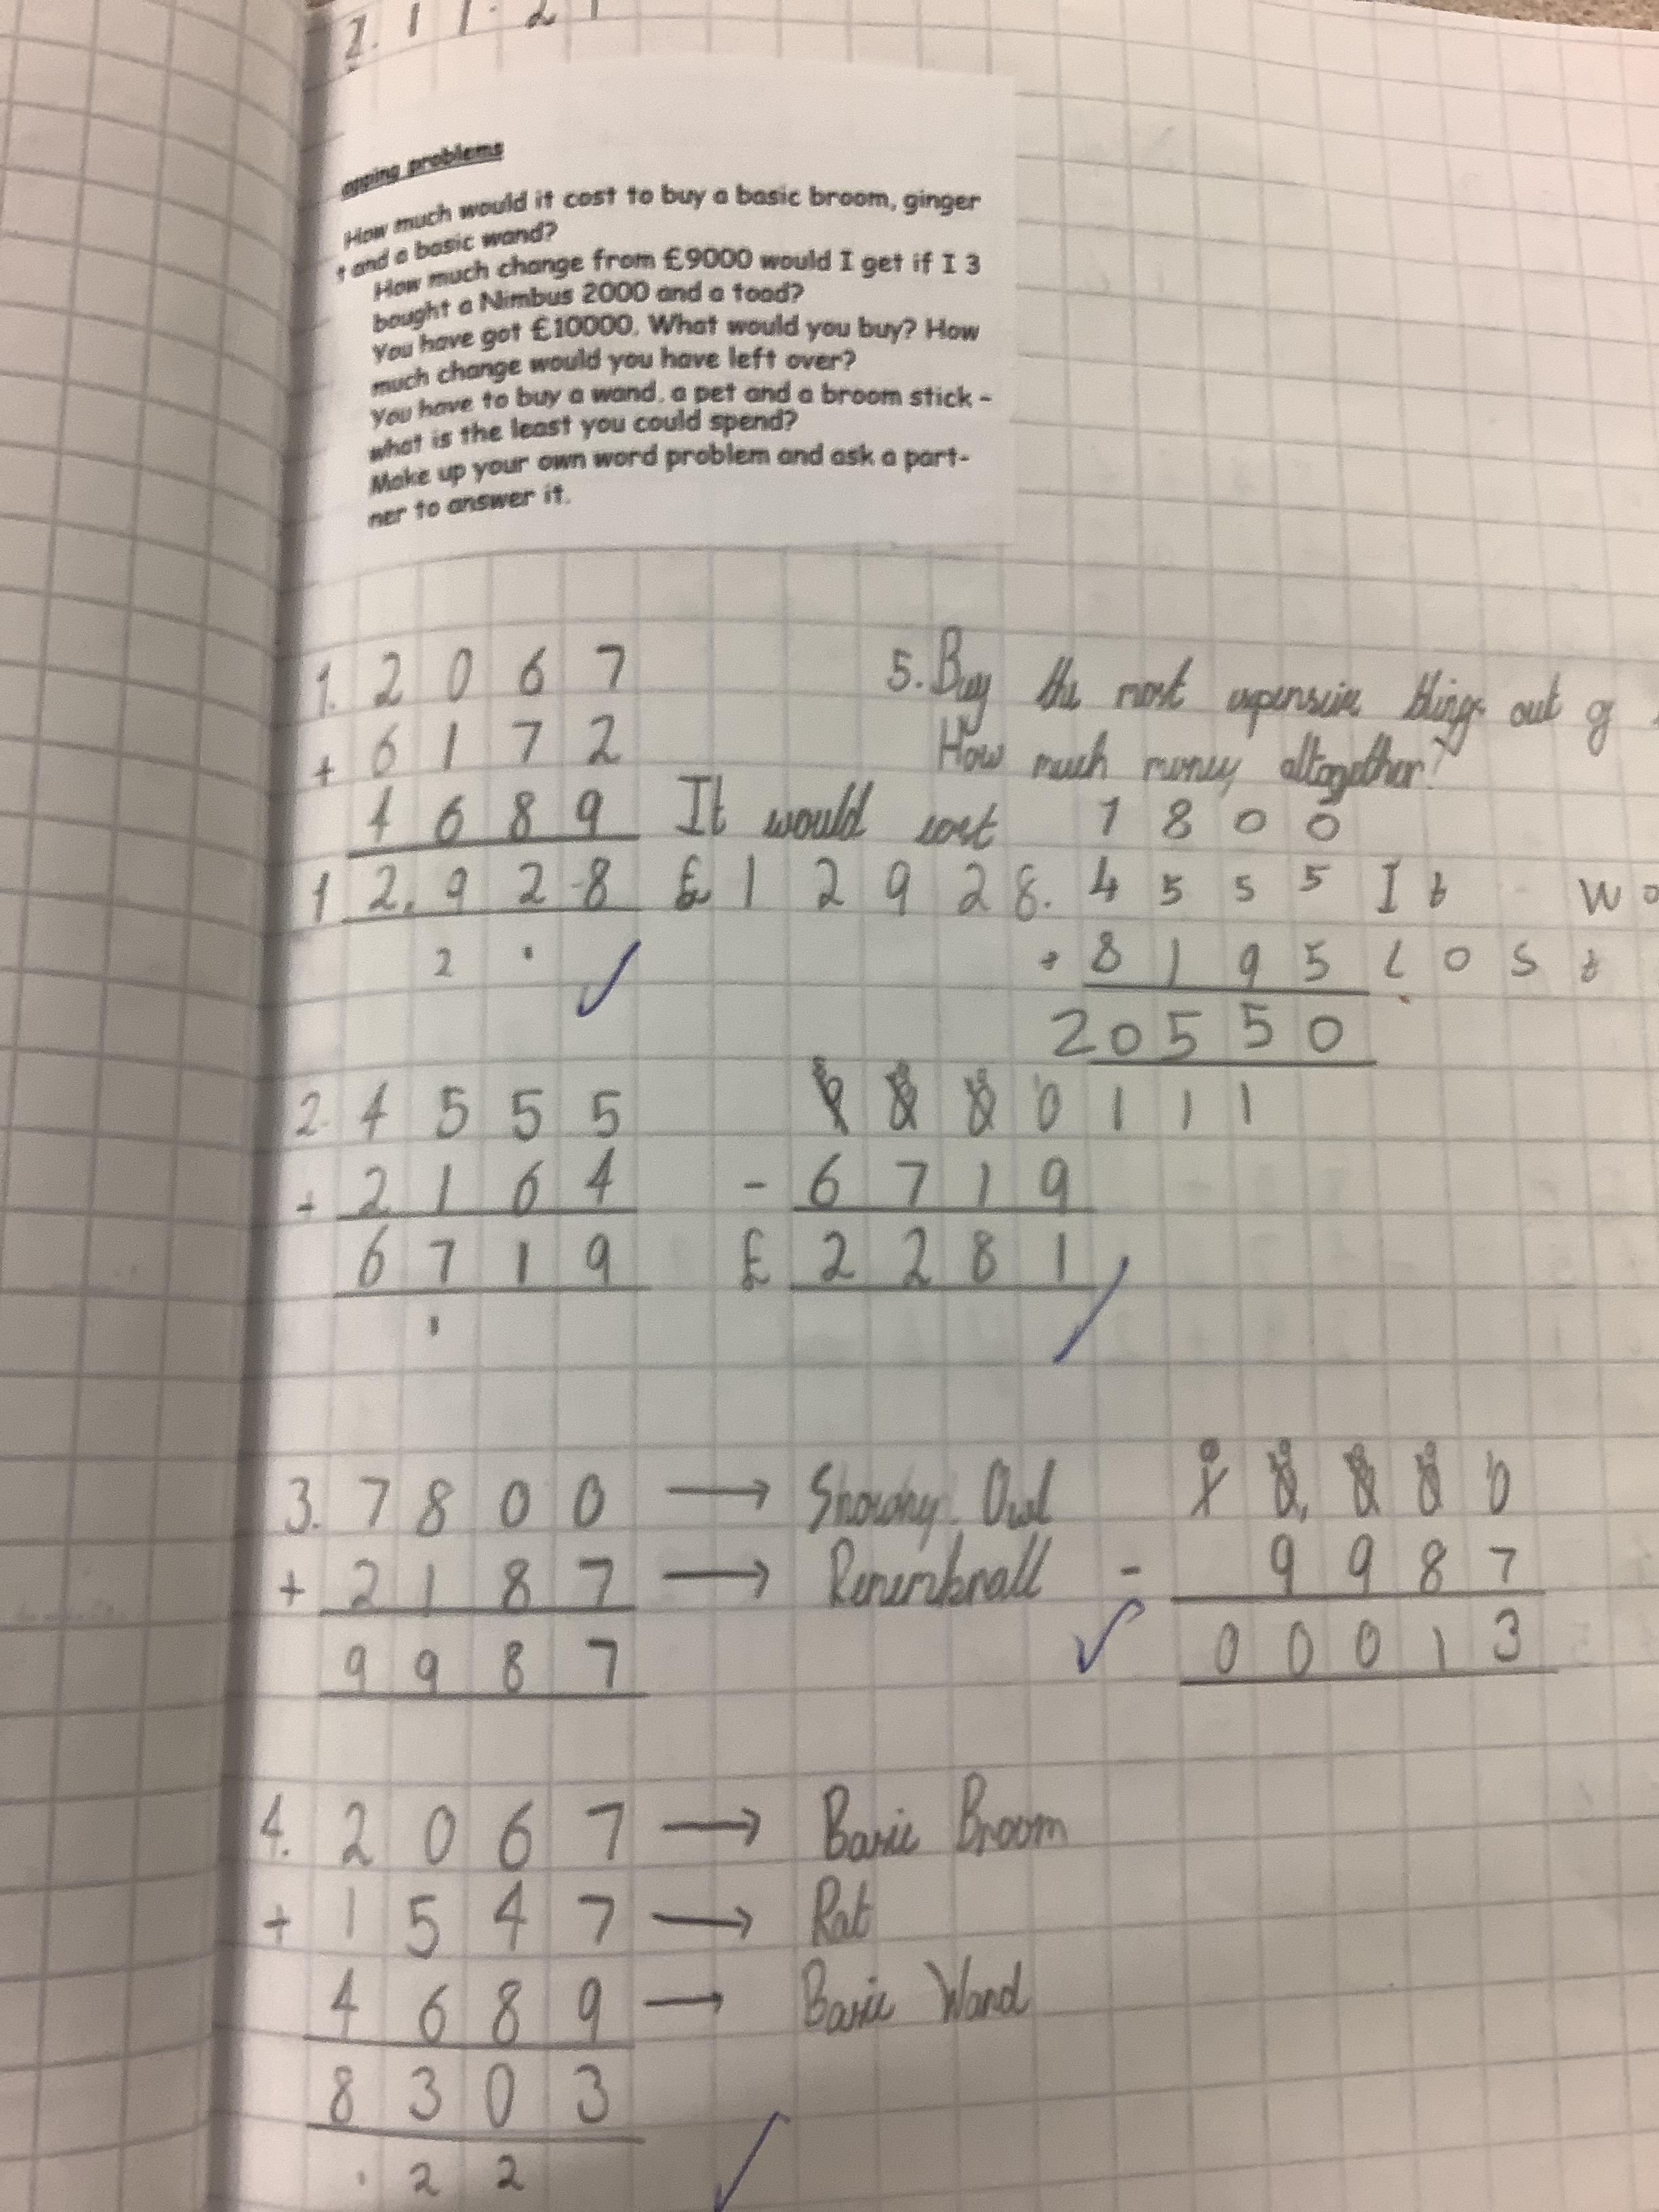 2. 1 1. 2 1
opping problems
How much would it cost to buy a basic broom, ginger
t and a basic wand?
How much change from £9000 would I get if I 3
bought a Nimbus 2000 and a toad?
You have got £10000. What would you buy? How
much change would you have left over?
You have to buy a wand, a pet and a broom stick -
what is the least you could spend?
Make up your own word problem and ask a part-
ner to answer it.
1. 2 0 6 7
+ 6 1 7 2
4 6 8 9 It would cost
1 2, 9 2 8 £ 1 2 9 2 8.
2 1
5. Buy the most expensive things out of
How much money altogether?
7 8 0 0
4 5 5 5 It wo
+ 8 1 9 5 cost
2 0 5 5 0
1 1 1
2. 4 5 5 5
+ 2 1 6 4
6 7 1 9
1
9 0 0 0
- 6 7 1 9
£ 2 2 8 1
3. 7 8 0 0 → Snowny Owl
+ 2 1 8 7 → Rememberall
9 9 8 7
1 0, 0 0 0
- 9 9 8 7
0 0 0 1 3
4. 2 0 6 7 → Basic Broom
+ 1 5 4 7 → Rat
4 6 8 9 → Basic Wand
8 3 0 3
1 2 2